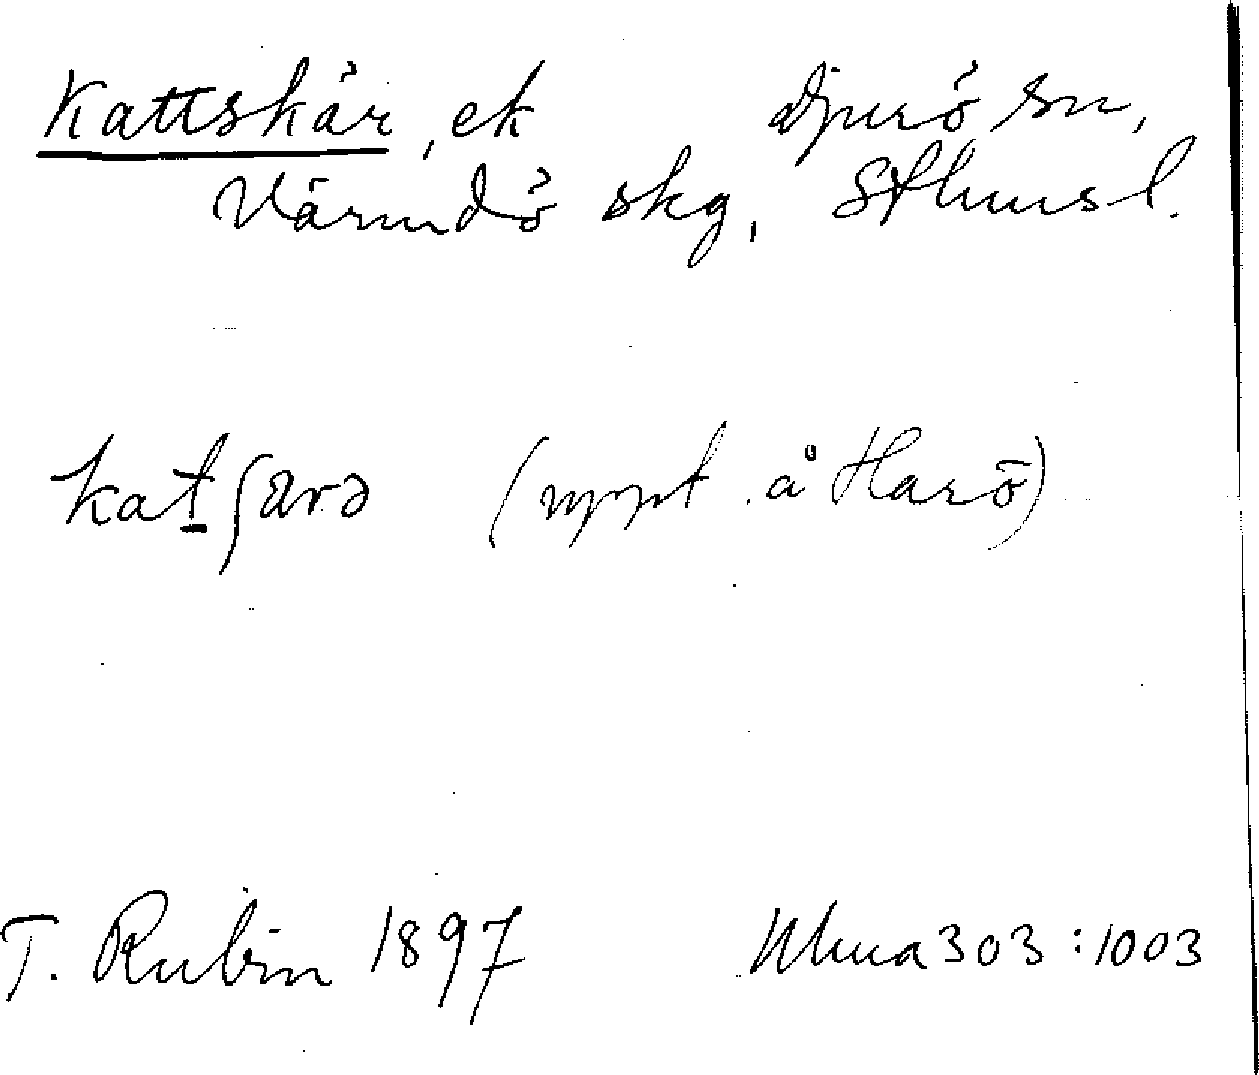 Kattskär, ek Djurö sn,
Värmdö skg, Sthmsl.
katʃærə (uppt. å Harö)
T. Rubin 1897 Ulma 303:1003